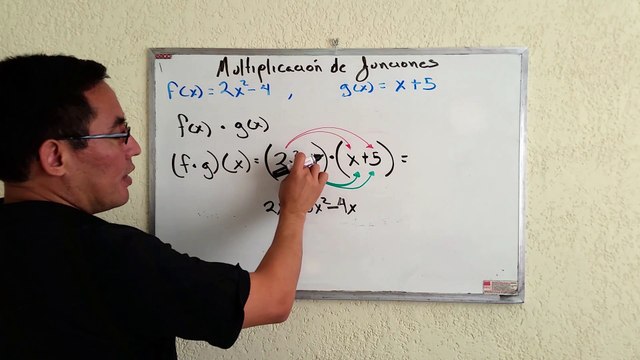 Multiplicación de funciones
f(x) = 2x² - 4 , g(x) = x + 5
f(x) • g(x)
(f • g)(x) = (2 ) • (x + 5) =
2 x² - 4x